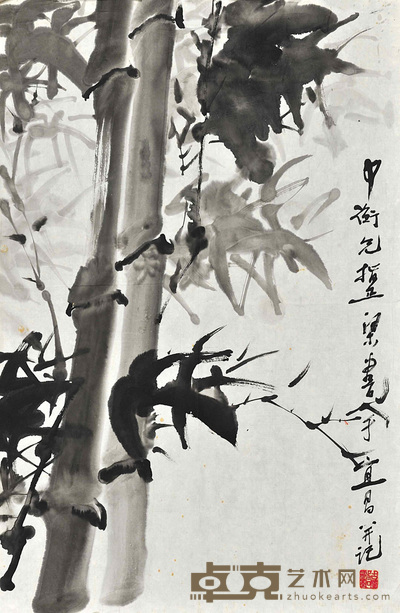 中衡兄指正 梁
于宜昌并记
卓克艺术网
www.zhuokearts.com